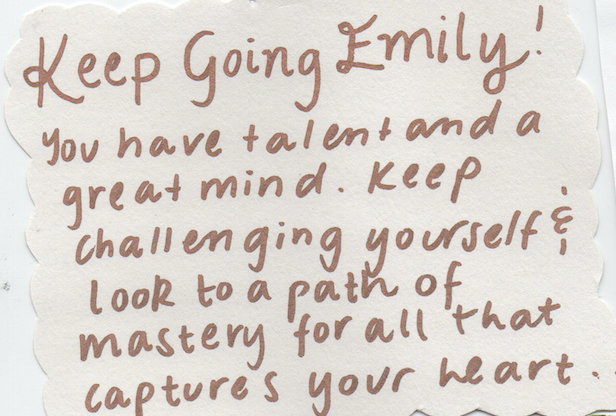 Keep Going Emily!
You have talent and a
great mind. Keep
challenging yourself &
look to a path of
mastery for all that
captures your heart.